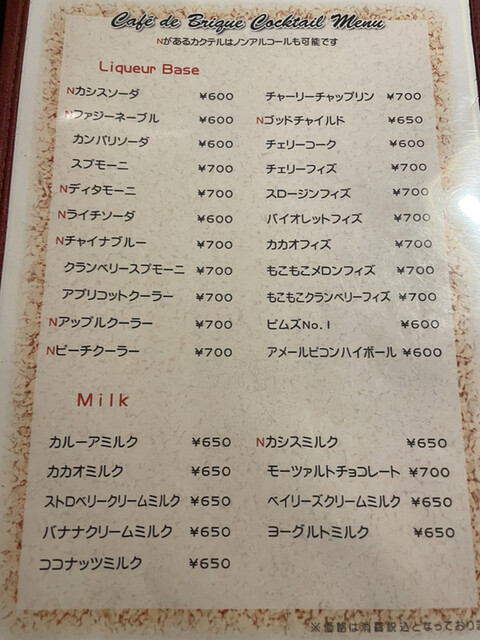 Café de Brique Cocktail Menu
Nがあるカクテルはノンアルコールも可能です
Liqueur Base
Nカシスソーダ ¥600
Nファジーネーブル ¥600
カンパリソーダ ¥600
スプモーニ ¥700
Nディタモーニ ¥700
Nライチソーダ ¥600
Nチャイナブルー ¥700
クランベリースプモーニ ¥700
アプリコットクーラー ¥700
Nアップルクーラー ¥700
Nピーチクーラー ¥700
チャーリーチャップリン ¥700
Nゴッドチャイルド ¥650
チェリーコーク ¥600
チェリーフィズ ¥700
スロージンフィズ ¥700
バイオレットフィズ ¥700
カカオフィズ ¥700
もこもこメロンフィズ ¥700
もこもこクランベリーフィズ ¥700
ピムズNo.1 ¥600
アメールピコンハイボール ¥600
Milk
カルーアミルク ¥650
カカオミルク ¥650
ストロベリークリームミルク ¥650
バナナクリームミルク ¥650
ココナッツミルク ¥650
Nカシスミルク ¥650
モーツァルトチョコレート ¥700
ベイリーズクリームミルク ¥650
ヨーグルトミルク ¥650
※価格は消費税込となっており